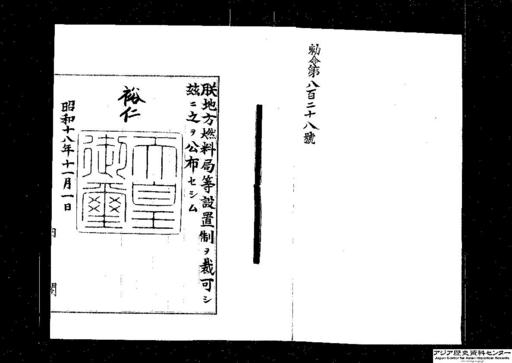 勅令第八百二十八號
朕地方燃料局等設置制ヲ裁可シ
玆ニ之ヲ公布セシム
裕仁
天皇御璽
昭和十八年十一月一日
内閣
アジア歴史資料センター
Japan Center for Asian Historical Records